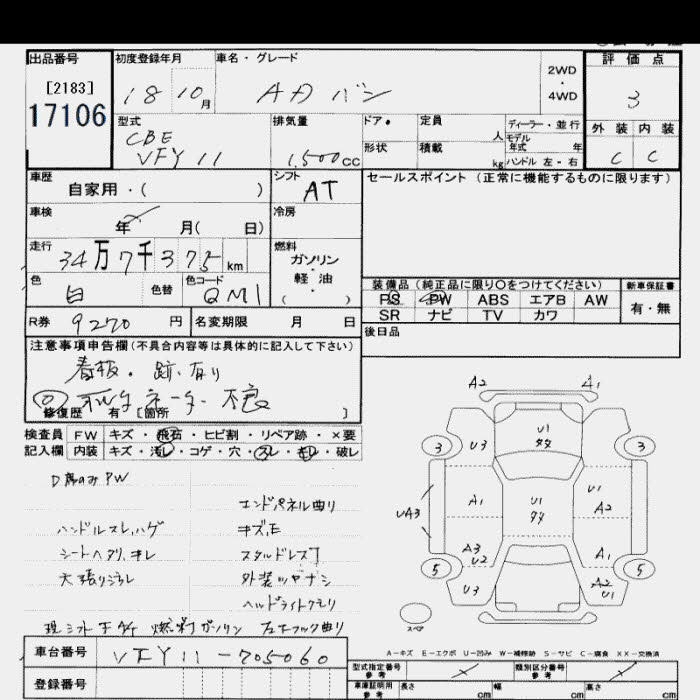 出品番号 初度登録年月 車名・グレード 評価点
[2183] 2WD ・ 4WD
17106 18 10月 AD バン 3
型式 排気量 ドア 定員 人 ディーラー・並行 外装 内装
CBE モデル年式 年
VFY11 1,500cc 形状 積載 kg ハンドル 左・右 C C
車歴 シフト セールスポイント (正常に機能するものに限ります)
自家用・( ) AT
車検 冷房
年 月( 日)
走行 燃料
34万7千375km ガソリン・軽油 ( )
色 色替 色コード 装備品 (純正品に限り○をつけてください) 新車保証書
白 QM1 PS PW ABS エアB AW 有・無
SR ナビ TV カワ
R券 9270円 名変期限 月 日 後日品
注意事項申告欄(不具合内容等は具体的に記入して下さい)
看板・跡有り
オルタネーター不良
修復歴 有 [箇所 ]
A2 A1
検査員 FW キズ・飛石・ヒビ割・リペア跡・×要
記入欄 内装 キズ・汚レ・コゲ・穴・スレ・モレ・破レ
3 U3 U1 3
D席のみPW
エンドパネル曲り
A1 U1 U1 A2
UA3
ハンドルスレ,ハゲ キズ,E
シートヘタリ,キレ スタルドレス
A3 U2 A1
天張りジラレ 外装ツヤナシ
5 U3 A2 U1 5
ヘッドライトクモリ
スペア
ガソリン 左右フック曲り
A-キズ E-エクボ U-凹み W-補修跡 S-サビ C-腐食 XX-交換済
車台番号 VFY11-705060
型式指定番号 参考 類別区分番号 参考
登録番号 車庫証明用 参考 長さ cm 幅 cm 高さ cm